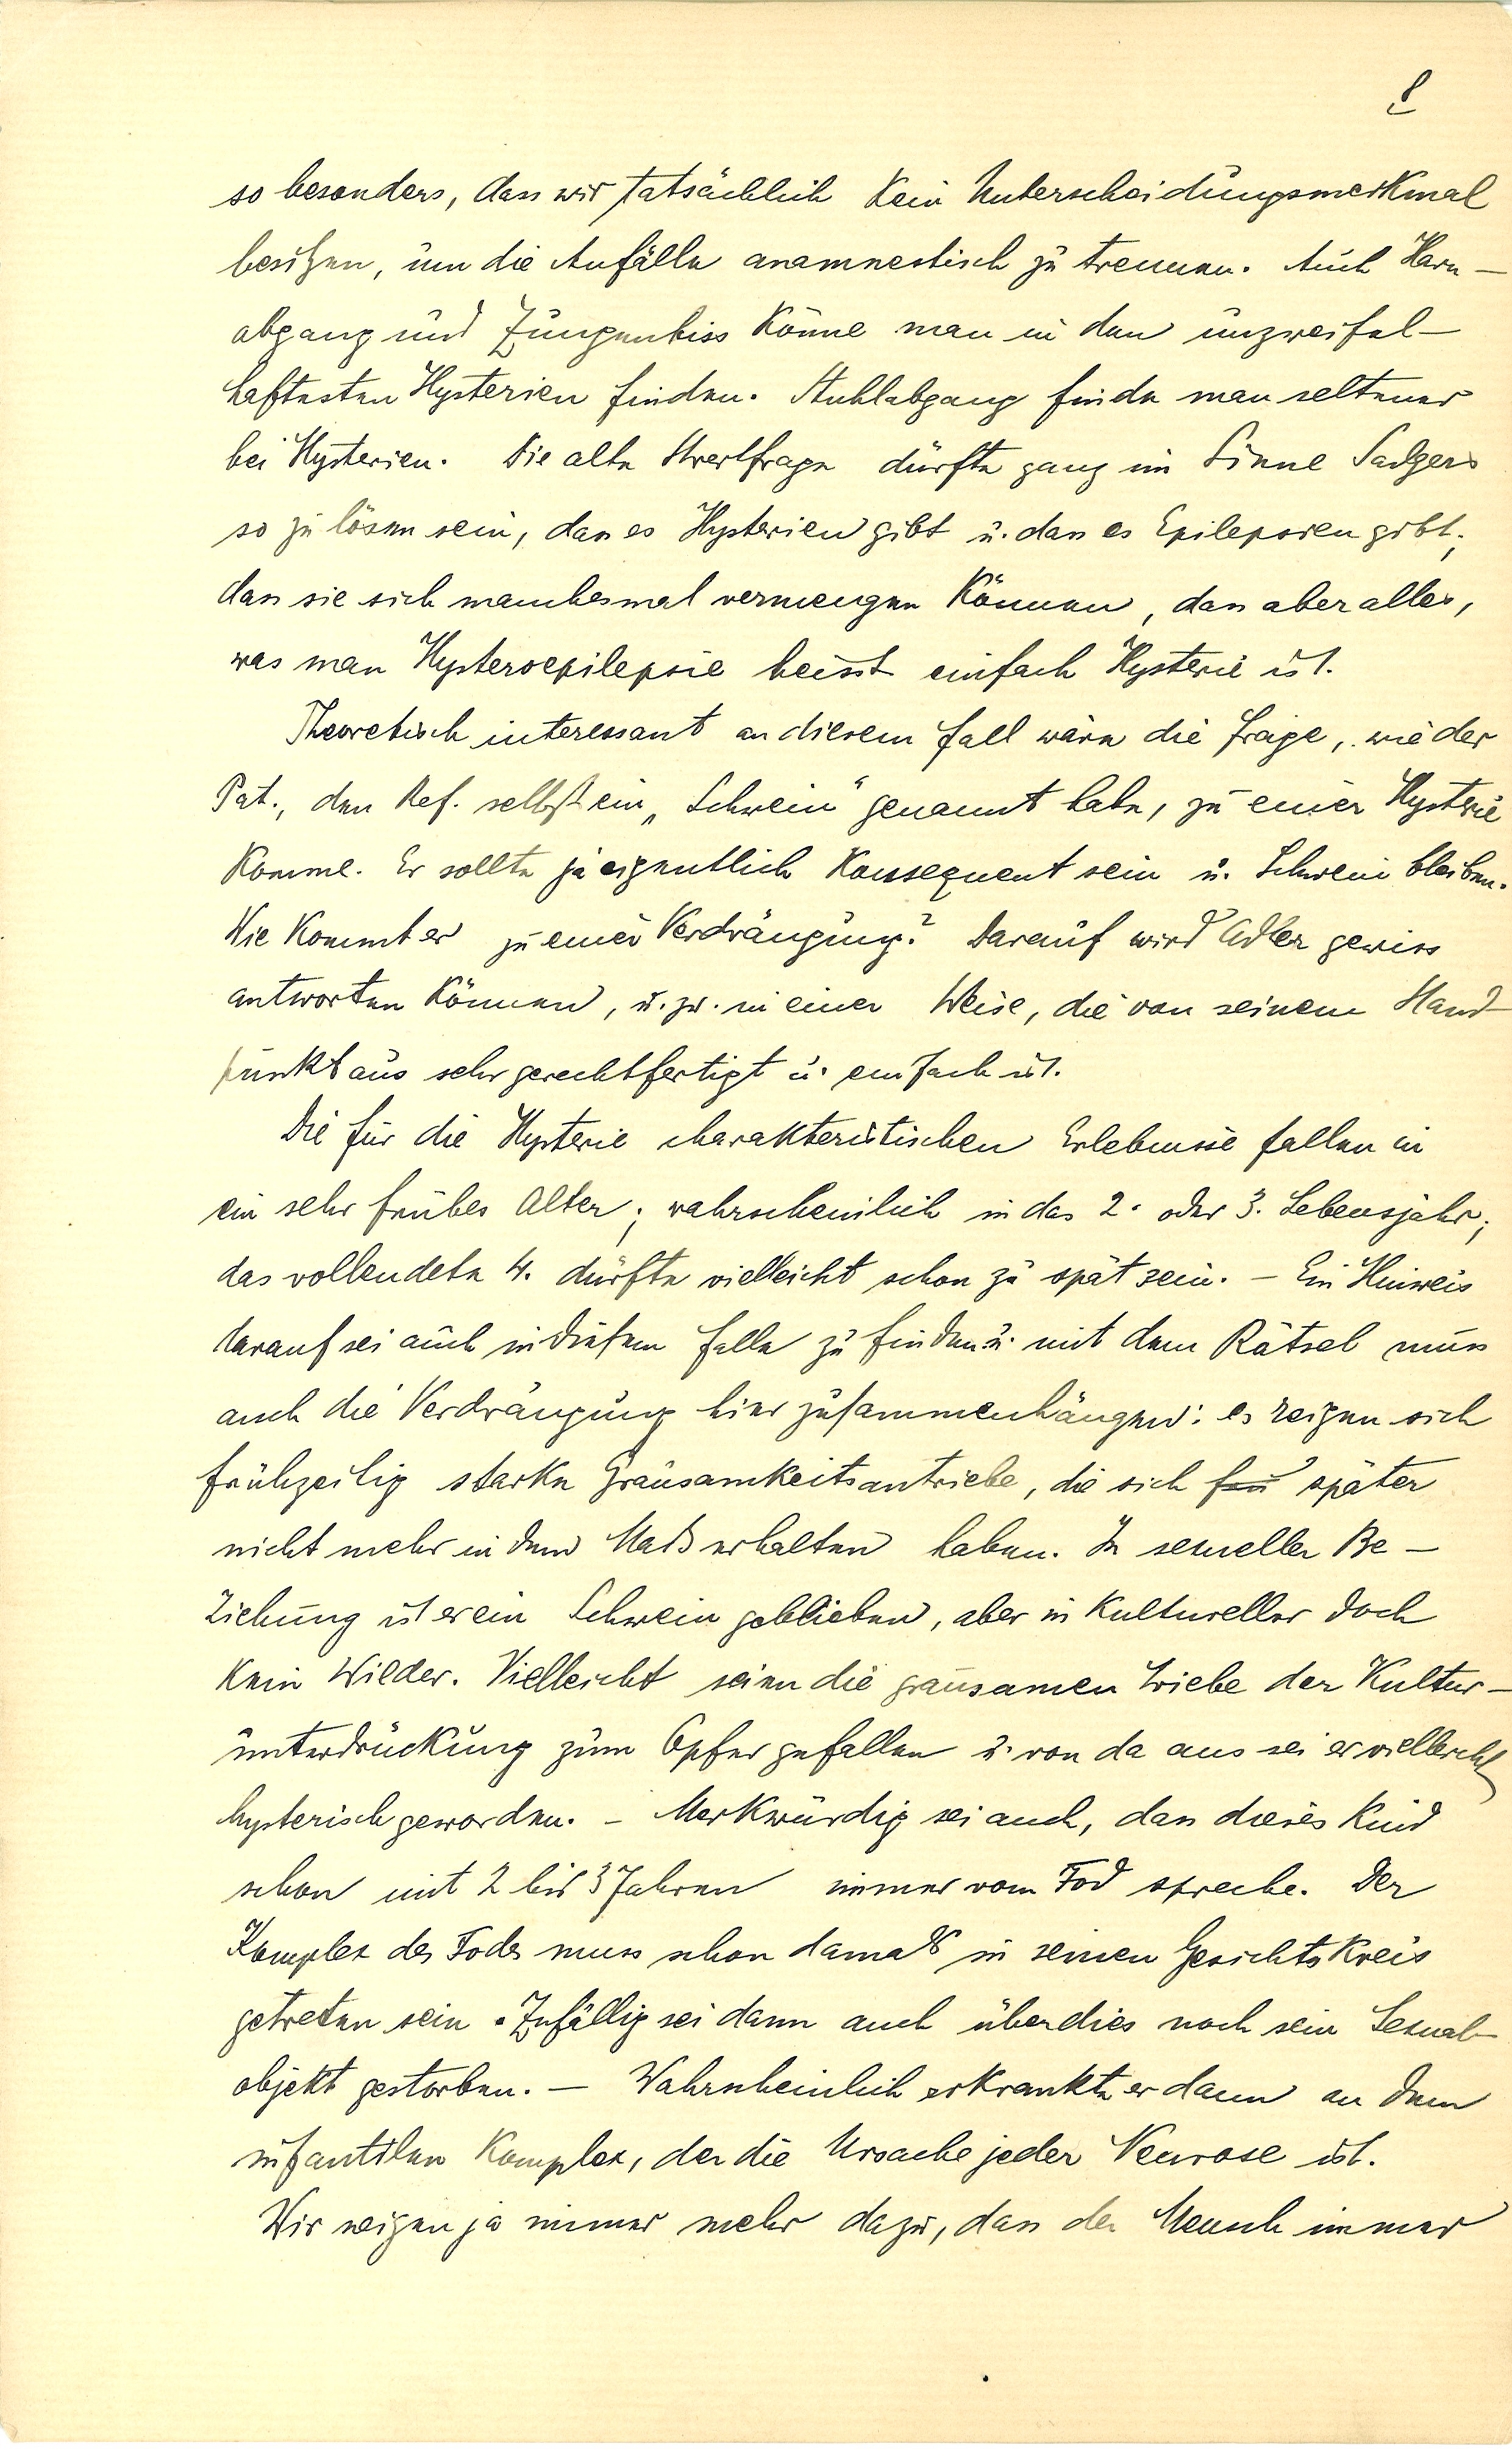 8
so besonders, dass wir tatsächlich kein Unterscheidungsmerkmal
besitzen, um die Anfälle anamnestisch zu trennen. Auch Harn-
abgang und Zungenbiss könne man in den unzweifel-
haftesten Hysterien finden. Stuhlabgang finde man seltener
bei Hysterien. Die alte Streitfrage dürfte ganz im Sinne Sadgers
so zu lösen sein, dass es Hysterien gibt u. dass es Epilepsien gibt;
dass sie sich manchesmal vermengen können, dass aber alles,
was man Hysteroepilepsie heisst einfach Hysterie ist.
Theoretisch interessant an diesem Fall wäre die Frage, wie der
Pat., den Ref. selbst ein „Schwein“ genannt habe, zu einer Hysterie
komme. Er sollte ja eigentlich konsequent sein u. Schwein bleiben.
Wie kommt er zu einer Verdrängung? Darauf wird Adler gewiss
antworten können, u. zw. in einer Weise, die von seinem Stand-
punkt aus sehr gerechtfertigt u. einfach ist.
Die für die Hysterie charakteristischen Erlebnisse fallen in
ein sehr frühes Alter; wahrscheinlich in das 2. oder 3. Lebensjahr;
das vollendete 4. dürfte vielleicht schon zu spät sein. – Ein Hinweis
darauf sei auch in diesem Falle zu finden u. mit dem Rätsel muss
auch die Verdrängung hier zusammenhängen: es zeigen sich
frühzeitig starke Grausamkeitsantriebe, die sich später
nicht mehr in dem Maß erhalten haben. In sexueller Be-
ziehung ist er ein Schwein geblieben, aber in kultureller doch
kein Wilder. Vielleicht seien die grausamen Triebe der Kultur-
unterdrückung zum Opfer gefallen u. von da aus sei er vielleicht
hysterisch geworden. – Merkwürdig sei auch, dass dieses Kind
schon mit 2 bis 3 Jahren immer vom Tod spreche. Der
Komplex des Todes muss schon damals in seinen Gesichtskreis
getreten sein. Zufällig sei dann auch überdies noch sein Sexual-
objekt gestorben. – Wahrscheinlich erkrankte er dann an dem
infantilen Komplex, der die Ursache jeder Neurose ist.
Wir neigen ja immer mehr dazu, dass der Mensch immer